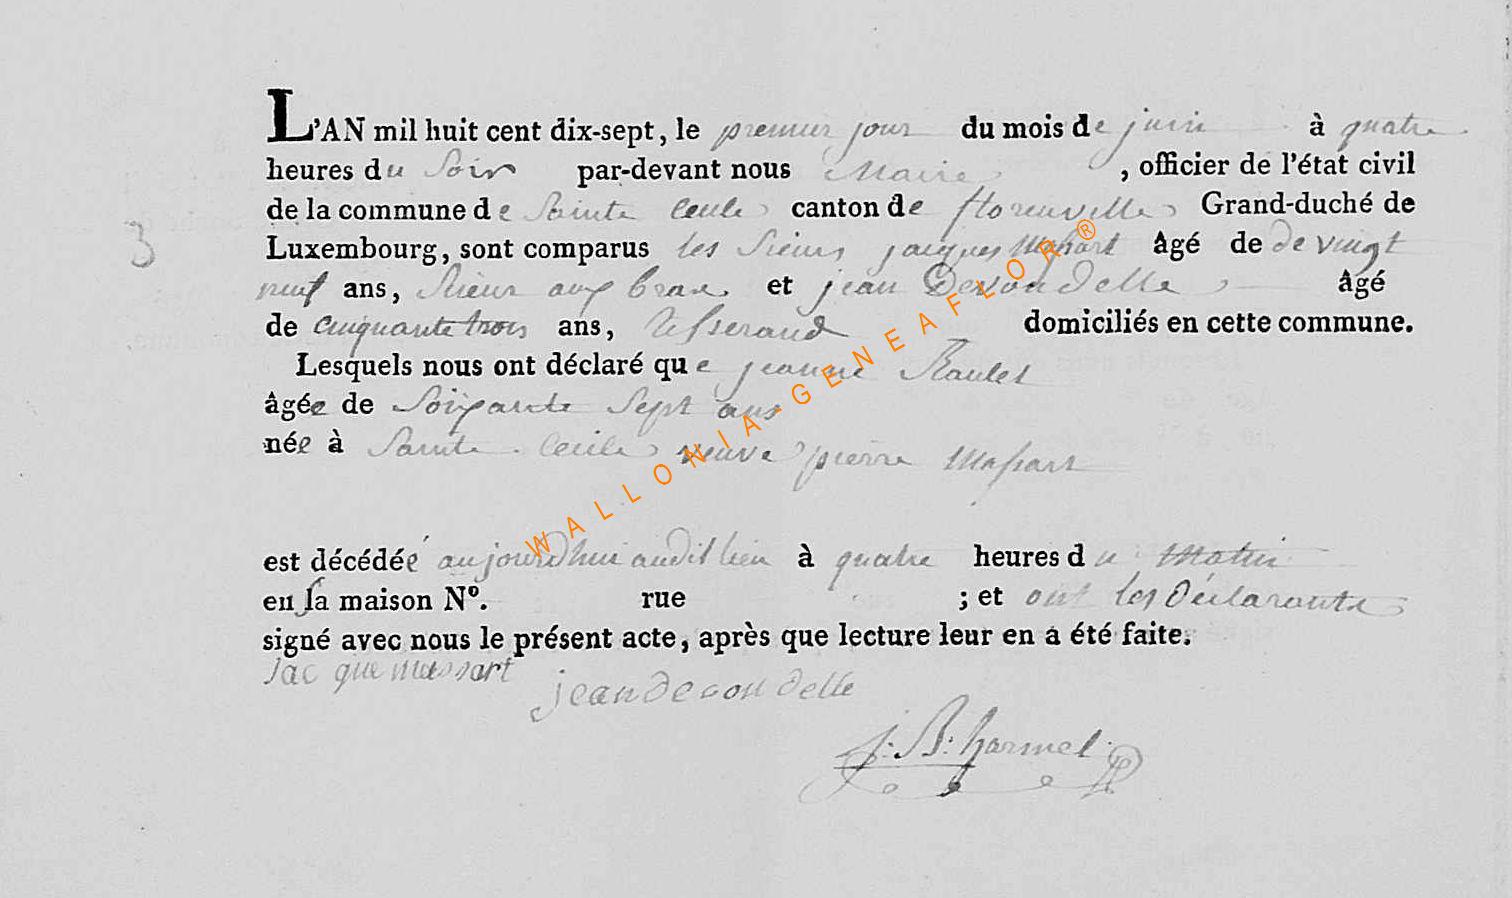 L'AN mil huit cent dix-sept, le premier jour du mois de juin à quatre
heures du Soir par-devant nous Maire, officier de l'état civil
de la commune de Sainte Cecile canton de florenville Grand-duché de
3
Luxembourg, sont comparus les Sieurs jacques Massart âgé de de vingt
neuf ans, Scieur aux bras et jean Decondelle âgé
de cinquante trois ans, tisserand domiciliés en cette commune.
Lesquels nous ont déclaré que jeanne Raulet
âgée de Soixante Sept ans
née à Sainte Cecile veuve pierre Massart
est décédée aujourd'hui audit lieu à quatre heures du Matin
en sa maison Nº. rue ; et ont les Déclarants
signé avec nous le présent acte, après que lecture leur en a été faite.
Jacque massart
jean decondelle
J: B: harmel
WALLONIA-GENEAFLOR®